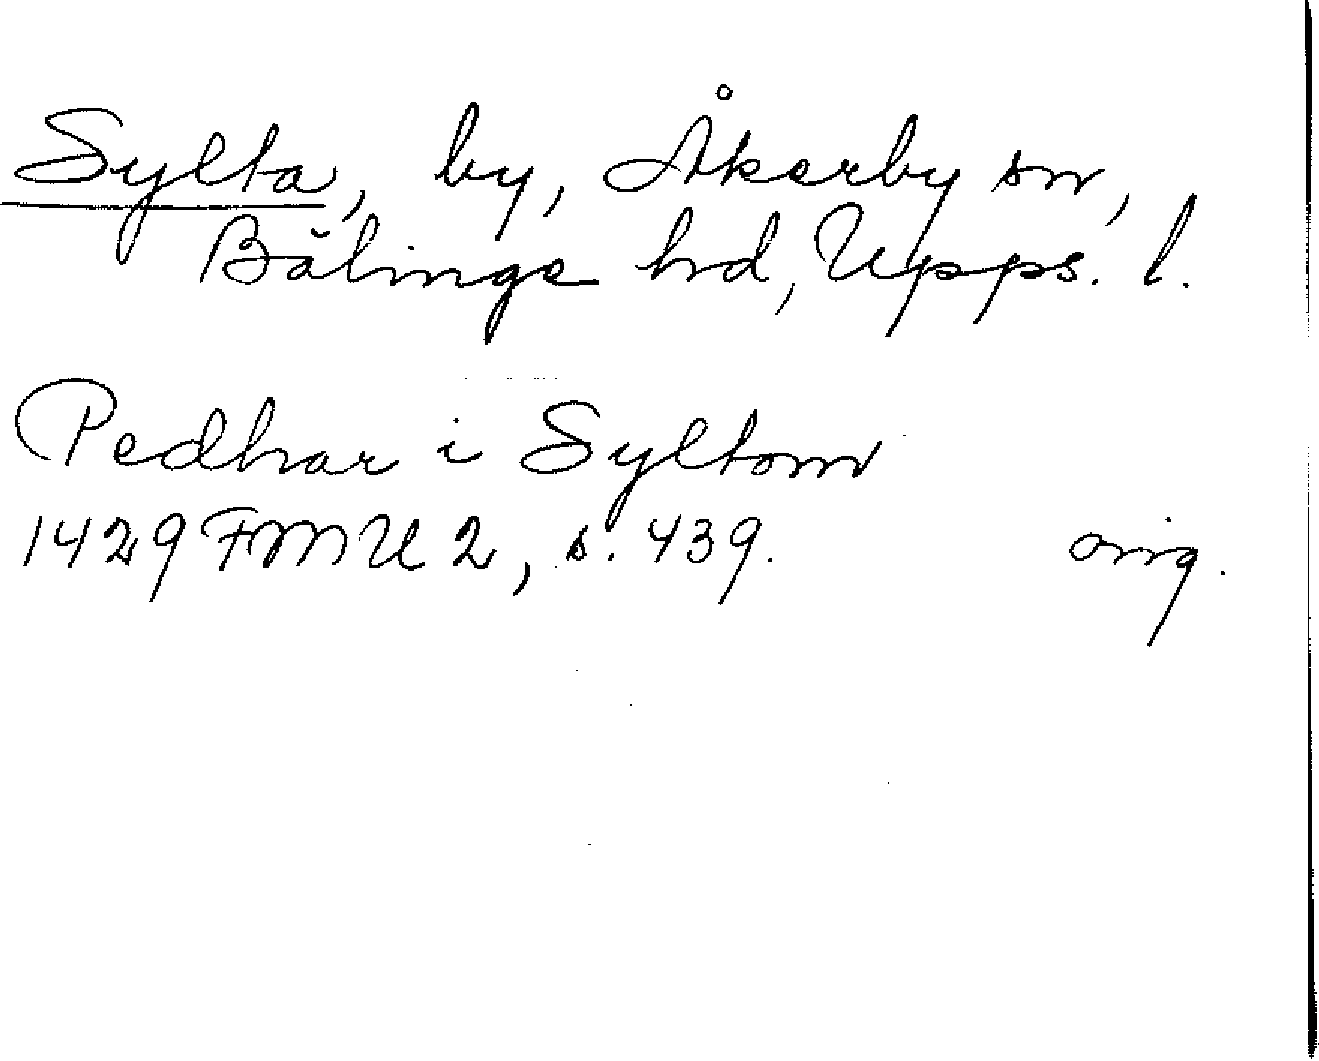 Sylta, by, Åkerby sn,
Bälinge hd, Upps. l.
Pedhar i Syltom
1429 FMU 2, s. 439. orig.